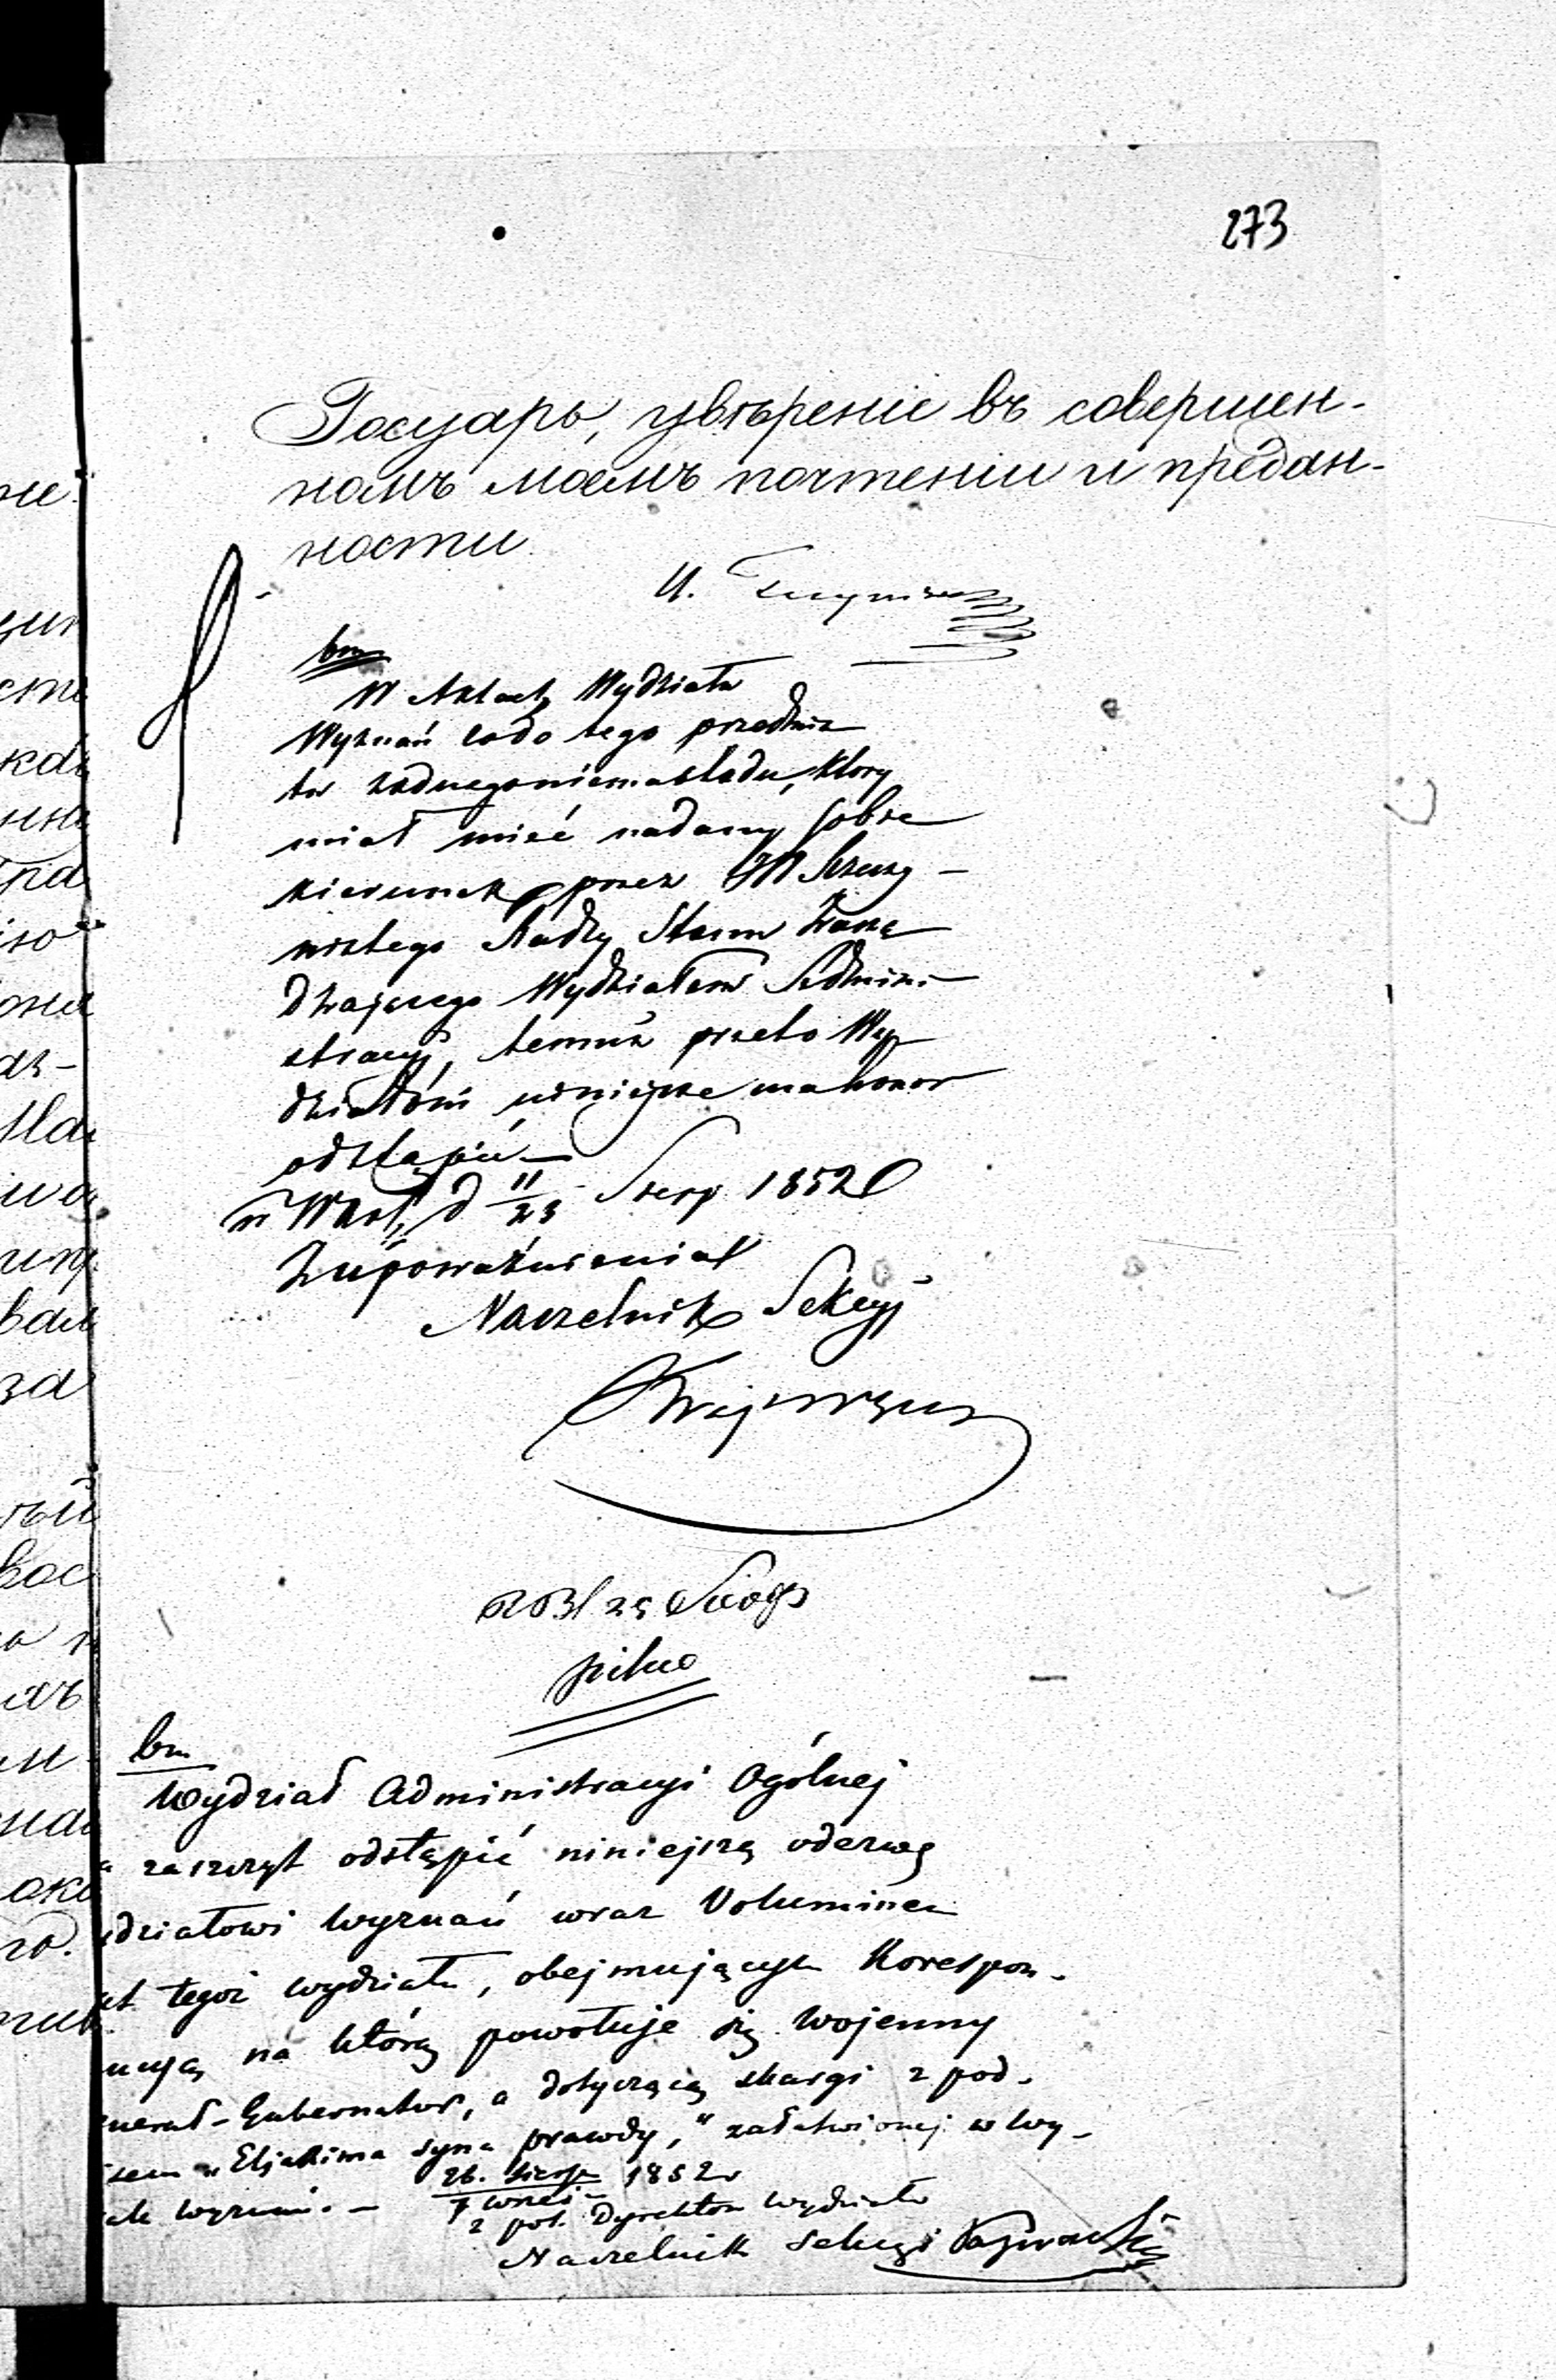 273
Государь, увѣреніе въ совершен-
номъ моемъ почтеніи и предан-
ности.
И.
bm
W Aktach Wydziału
Wyznań co do tego przedmio
tu żadnego niema śladu, który
miał mieć nadany sobie
kierunek przez JW
Radzcę Stanu Zarzą
dzającego Wydziałem Admini-
stracyi, temuż przeto Wy-
działowi niniejsze ma honor
odstąpić —
w Warsz. d 11/23 Sierp 1852
Z upoważnienia
Naczelnik Sekcyi
pilno
bm
Wydział Administracyi Ogólnej
zaszczyt odstąpić niniejszą odezwę
działowi Wyznań wraz Volumine
akt tegoż wydziału, obejmującym Korespon-
ncyą, na którą powołuje się Wojenny
nerał-Gubernator, a dotyczącą skargi z pod-
isem „Eljakima syna prawdy," załatwionej w Wy-
ale wyznań. — 26. Sierp / 7 Wrześ 1852 r
z pol. Dyrektora Wydziału
Naczelnik Sekcyi